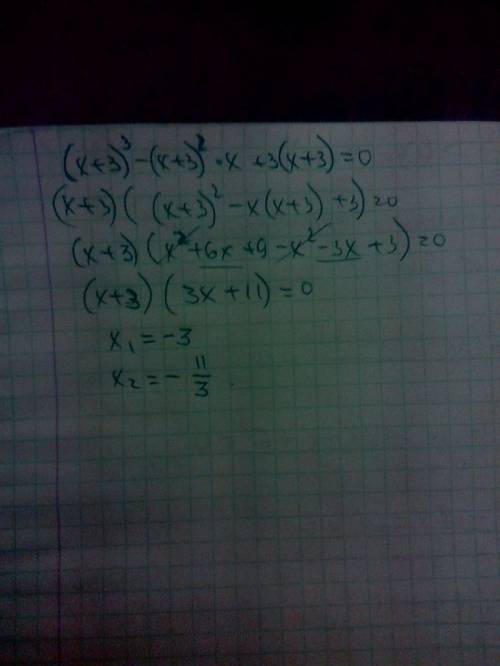 (x+3)³-(x+3)²·x+3(x+3)=0
(x+3)((x+3)²-x(x+3)+3)=0
(x+3)(x²+6x+9-x²-3x+3)=0
(x+3)(3x+11)=0
x₁=-3
x₂=-11/3.